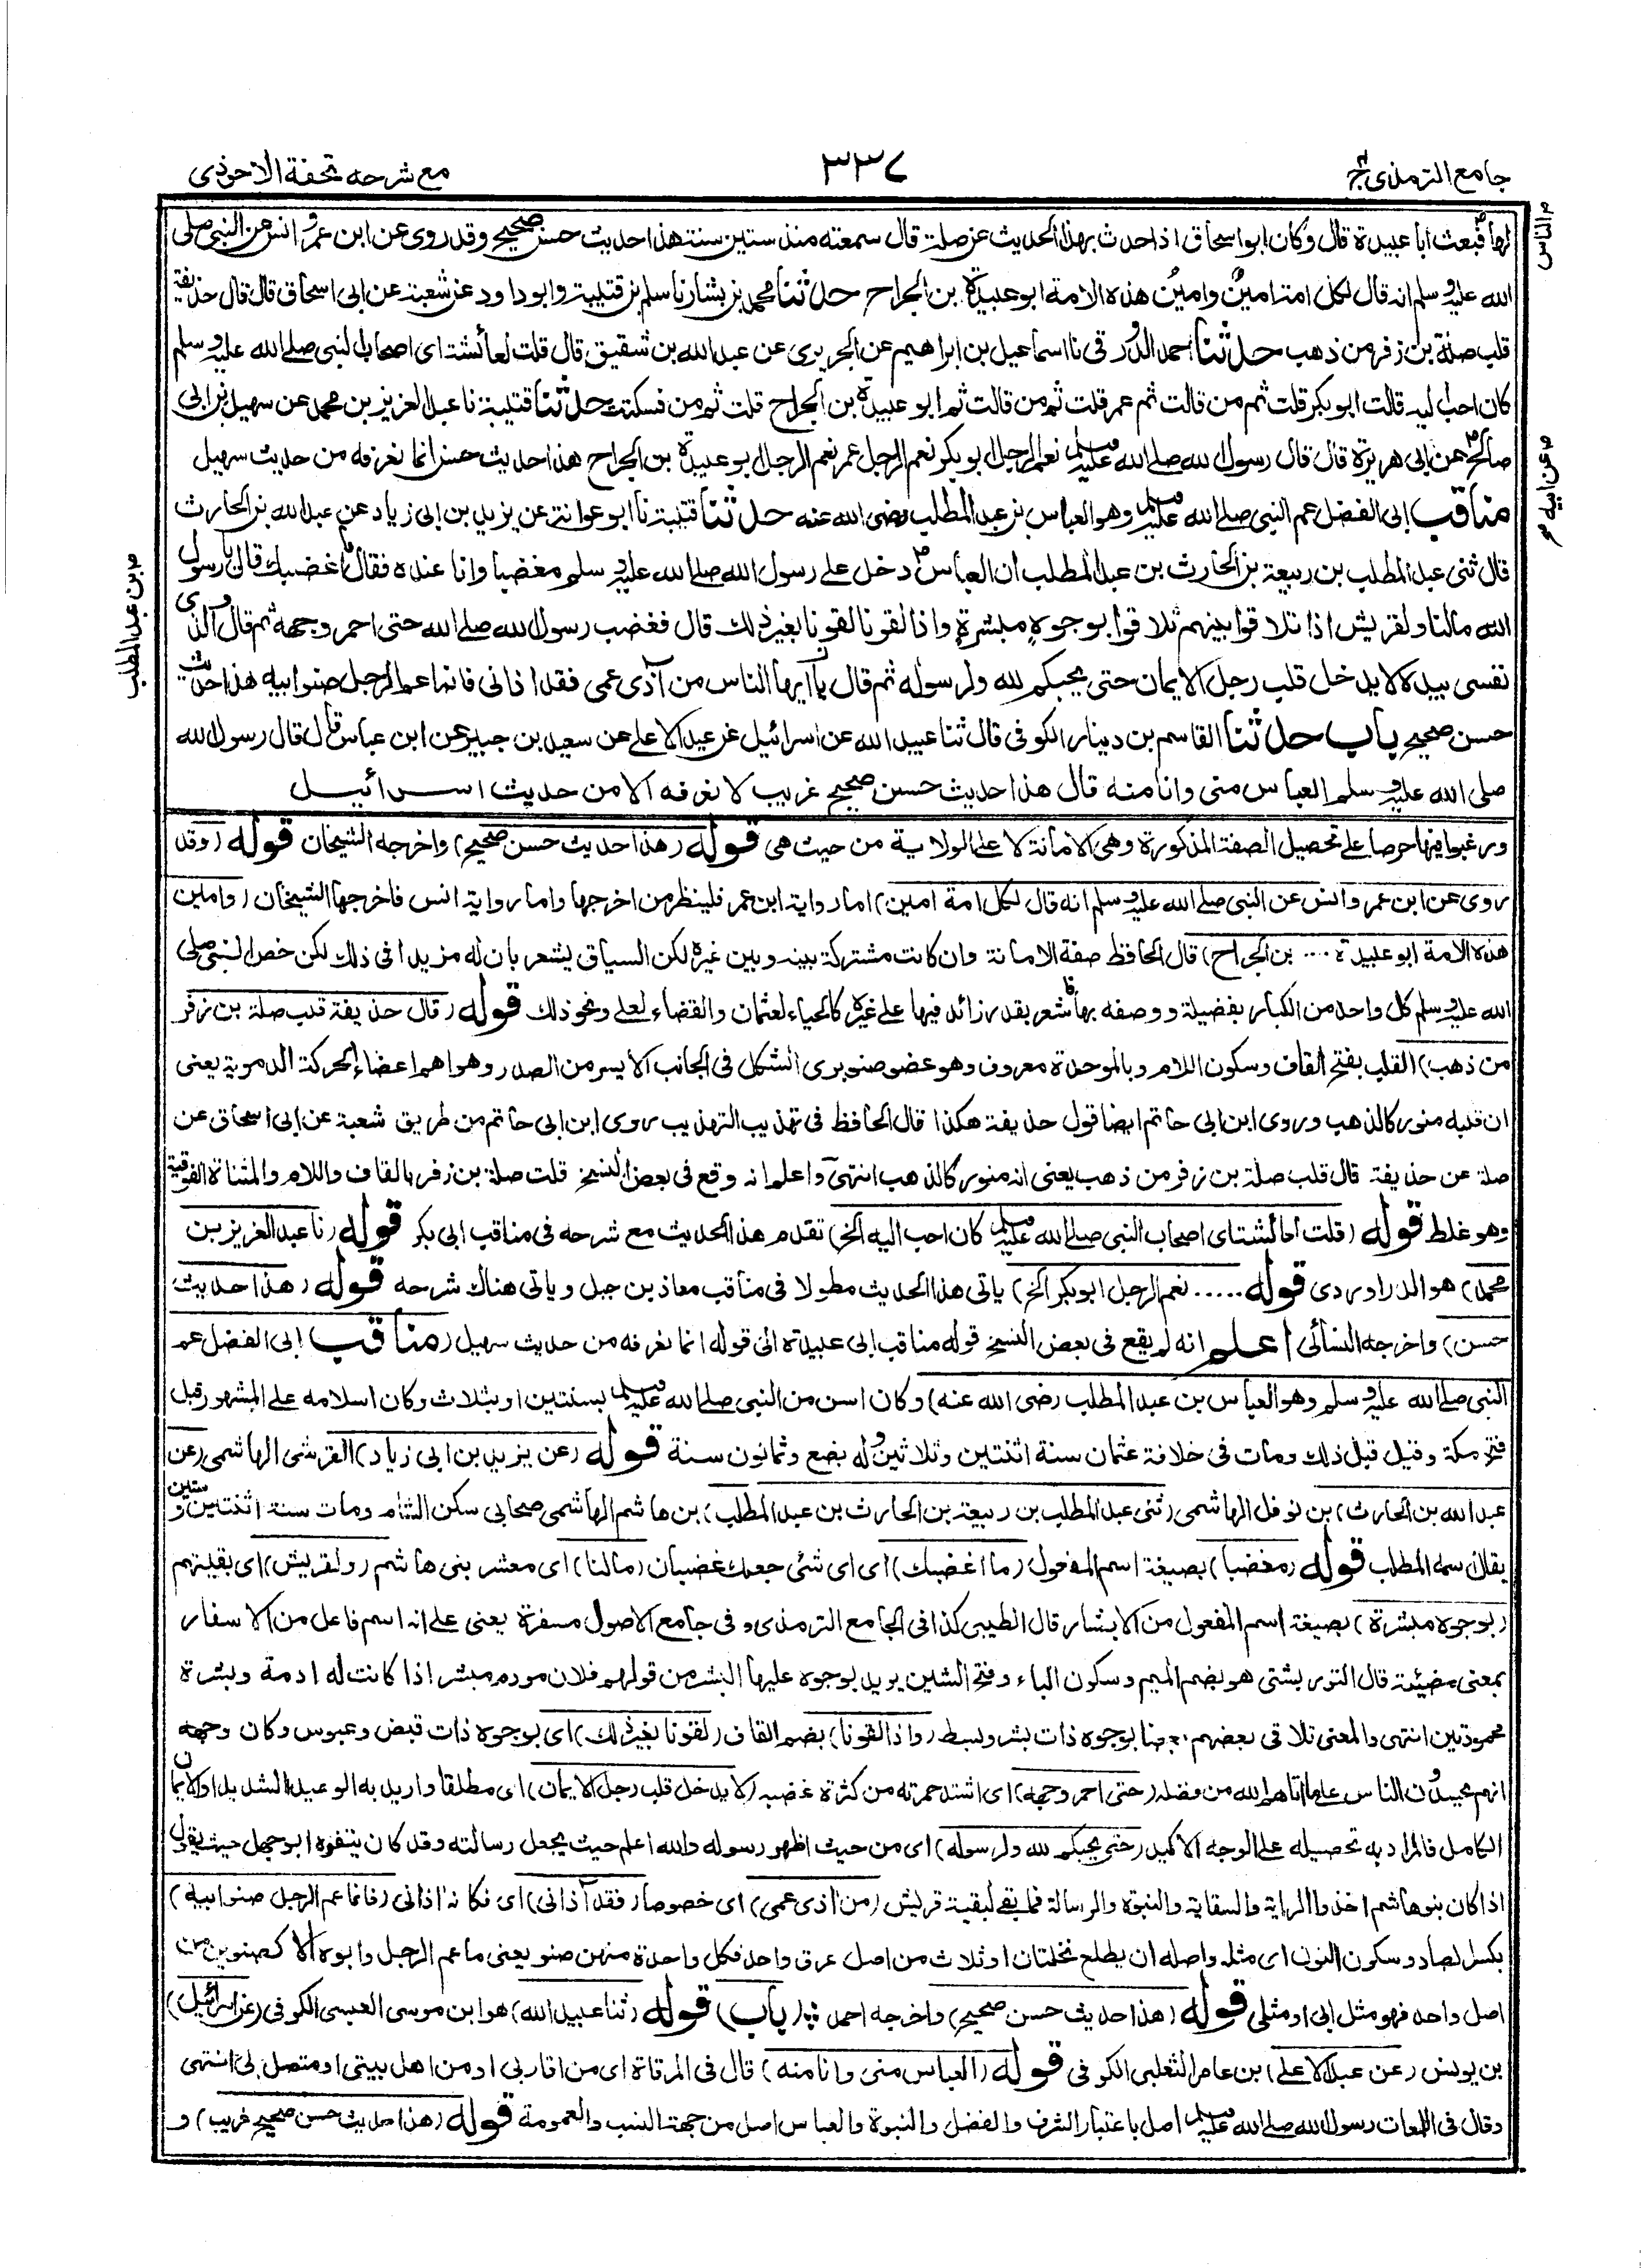 جامع الترمذى ج٤
٣٣٧
مع شرحه تحفة الاحوذى
لها فبعث ابا عبيدة قال وكان ابو اسحاق اذا حدث بهذا الحديث عن صلة قال سمعته منذ ستين سنة هذا حديث حسن صحيح وقد روى عن ابن عمر و انس عن النبى صلى
الله عليه وسلم انه قال لكل امة امين وامين هذه الامة ابو عبيدة بن الجراح حدثنا محمد بن بشار نا سلم بن قتيبة وابو داود عن شعبة عن ابى اسحاق قال قال حذيفة
قلب صلة بن زفر من ذهب حدثنا احمد الدورقى نا اسماعيل بن ابراهيم عن الجريرى عن عبد الله بن شقيق قال قلت لعائشة اى اصحاب النبى صلى الله عليه وسلم
كان احب اليه قالت ابو بكر قلت ثم من قالت ثم عمر قلت ثم من قالت ثم ابو عبيدة بن الجراح قلت ثم من فسكتت حدثنا قتيبة نا عبد العزيز بن محمد عن سهيل بن ابى
صالح عن ابى هريرة قال قال رسول الله صلى الله عليه وسلم نعم الرجل ابو بكر نعم الرجل عمر نعم الرجل ابو عبيدة بن الجراح هذا حديث حسن انما نعرفه من حديث سهيل
مناقب ابى الفضل عم النبى صلى الله عليه وسلم وهو العباس بن عبد المطلب رضى الله عنه حدثنا قتيبة نا ابو عوانة عن يزيد بن ابى زياد عن عبد الله بن الحارث
قال ثنى عبد المطلب بن ربيعة بن الحارث بن عبد المطلب ان العباس دخل على رسول الله صلى الله عليه وسلم مغضبا وانا عنده فقال ما اغضبك قال يا رسول
الله مالنا ولقريش اذا تلاقوا بينهم تلاقوا بوجوه مبشرة واذا لقونا لقونا بغير ذلك قال فغضب رسول الله صلى الله حتى احمر وجهه ثم قال والذى
نفسى بيده لا يدخل قلب رجل الايمان حتى يحبكم لله ولرسوله ثم قال يا ايها الناس من آذى عمى فقد اذانى فانما عم الرجل صنو ابيه هذا حديث
حسن صحيح باب حدثنا القاسم بن دينار الكوفى قال ثنا عبيد الله عن اسرائيل عن عبد الاعلى عن سعيد بن جبير عن ابن عباس قال قال رسول الله
صلى الله عليه وسلم العباس منى وانا منه قال هذا حديث حسن صحيح غريب لا نعرفه الا من حديث اسرائيل
م الناس
م عن ابيه
م بن عبد المطلب
ورغبوا فيها حرصا على تحصيل الصفة المذكورة وهى الامانة لا على الولاية من حيث هى قوله (هذا حديث حسن صحيح) واخرجه الشيخان قوله (وقد
روى عن ابن عمر وانس عن النبى صلى الله عليه وسلم انه قال لكل امة امين) اما رواية ابن عمر فلينظر من اخرجها واما رواية انس فاخرجها الشيخان (وامين
هذه الامة ابو عبيدة .... بن الجراح) قال الحافظ صفة الامانة وان كانت مشتركة بينه وبين غيره لكن السياق يشعر بان له مزيدا فى ذلك لكن خص النبى صلى
الله عليه وسلم كل واحد من الكبار بفضيلة ووصفه بها فاشعر بقدر زائد فيها على غيره كالحياء لعثمان والقضاء لعلى ونحو ذلك قوله (قال حذيفة قلب صلة بن زفر
من ذهب) القلب بفتح القاف وسكون اللام وبالموحدة معروف وهو عضو صنوبرى الشكل فى الجانب الايسر من الصدر وهو اهم اعضاء الحركة الدموية يعنى
ان قلبه منور كالذهب وروى ابن ابى حاتم ايضا قول حذيفة هكذا قال الحافظ فى تهذيب التهذيب روى ابن ابى حاتم من طريق شعبة عن ابى اسحاق عن
صلة عن حذيفة قال قلب صلة بن زفر من ذهب يعنى انه منور كالذهب انتهى واعلم انه وقع فى بعض النسخ قلت صلة بن زفر بالقاف واللام والمثناة الفوقية
وهو غلط قوله (قلت لعائشة اى اصحاب النبى صلى الله عليه وسلم كان احب اليه الخ) تقدم هذا الحديث مع شرحه فى مناقب ابى بكر قوله (نا عبد العزيز بن
محمد) هو الدراوردى قوله ..... نعم الرجل ابو بكر الخ) ياتى هذا الحديث مطولا فى مناقب معاذ بن جبل وياتى هناك شرحه قوله (هذا حديث
حسن) واخرجه النسائى اعلم انه لم يقع فى بعض النسخ قوله مناقب ابى عبيدة الى قوله انما نعرفه من حديث سهيل (مناقب ابى الفضل عم
النبى صلى الله عليه وسلم وهو العباس بن عبد المطلب رضى الله عنه) وكان اسن من النبى صلى الله عليه وسلم بسنتين او بثلاث وكان اسلامه على المشهور قبل
فتح مكة وقيل قبل ذلك ومات فى خلافة عثمان سنة اثنتين وثلاثين وله بضع وثمانون سنة قوله (عن يزيد بن ابى زياد) القرشى الهاشمى (عن
عبد الله بن الحارث) بن نوفل الهاشمى (ثنى عبد المطلب بن ربيعة بن الحارث بن عبد المطلب) بن هاشم الهاشمى صحابى سكن الشام ومات سنة اثنتين و ستين
يقال اسمه المطلب قوله (مغضبا) بصيغة اسم المفعول (ما اغضبك) اى اى شئ جعلك غضبان (مالنا) اى معشر بنى هاشم (ولقريش) اى بقيتهم
(بوجوه مبشرة) بصيغة اسم المفعول من الابشار قال الطيبى كذا فى الجامع الترمذى وفى جامع الاصول مسفرة يعنى على انه اسم فاعل من الاسفار
بمعنى مضيئة قال التوربشتى هو بضم الميم وسكون الباء وفتح الشين يريد بوجوه عليها البشر من قولهم فلان مودم مبشر اذا كانت له ادمة وبشرة
محمودتين انتهى والمعنى تلاقى بعضهم بعضا بوجوه ذات بشر وبسط (واذا لقونا) بضم القاف (لقونا بغير ذلك) اى بوجوه ذات قبض وعبوس وكان وجهه
انهم يحسدون الناس على ما اتاهم الله من فضله (حتى احمر وجهه) اى اشتد حمرته من كثرة غضبه (لا يدخل قلب رجل الايمان) اى مطلقا واريد به الوعيد الشديد او الايمان
الكامل فالمراد به تحصيله على الوجه الاكيد (حتى يحبكم لله ولرسوله) اى من حيث اظهر رسوله والله اعلم حيث يجعل رسالته وقد كان يتفوه ابو جهل حيث يقول
اذا كان بنو هاشم اخذوا الراية والسقاية والنبوة والرسالة فما بقى لبقية قريش (من اذى عمى) اى خصوصا (فقد آذانى) اى فكانه اذانى (فانما عم الرجل صنو ابيه)
بكسر الصاد وسكون النون اى مثله واصله ان يطلع نخلتان او ثلاث من اصل عرق واحد فكل واحدة منهن صنو يعنى ما عم الرجل وابوه الا كصنوين من
اصل واحد فهو مثل ابى او مثلى قوله (هذا حديث حسن صحيح) واخرجه احمد (باب) قوله (ثنا عبيد الله) هو ابن موسى العبسى الكوفى (عن اسرائيل)
بن يونس (عن عبد الاعلى) بن عامر الثعلبى الكوفى قوله (العباس منى وانا منه) قال فى المرقاة اى من اقاربى او من اهل بيتى او متصل بى انتهى
وقال فى اللمعات رسول الله صلى الله عليه وسلم اصل باعتبار الشرف والفضل والنبوة والعباس اصل من جهة النسب والعمومة قوله (هذا حديث حسن صحيح غريب) و